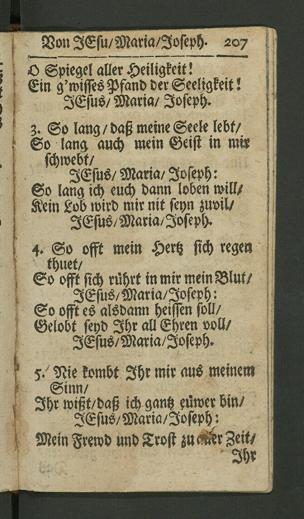 Von JEsu/Maria/Joseph. 207
O Spiegel aller Heiligkeit!
Ein g'wisses Pfand der Seeligkeit!
JEsus/ Maria/ Joseph.
3. So lang/ daß meine Seele lebt/
So lang auch mein Geist in mir
schwebt/
JEsus/ Maria/ Joseph:
So lang ich euch dann loben will/
Kein Lob wird mir nit seyn zuvil/
JEsus/Maria/Joseph.
4. So offt mein Hertz sich regen
thuet/
So offt sich rührt in mir mein Blut/
JEsus/Maria/Joseph:
So offt es alsdann heissen soll/
Gelobt seyd Ihr all Ehren voll/
JEsus/Maria/Joseph.
5. Nie kombt Ihr mir aus meinem
Sinn/
Ihr wißt/daß ich gantz eüwer bin/
JEsus/Maria/Joseph:
Mein Frewd und Trost zu aller Zeit/
Ihr